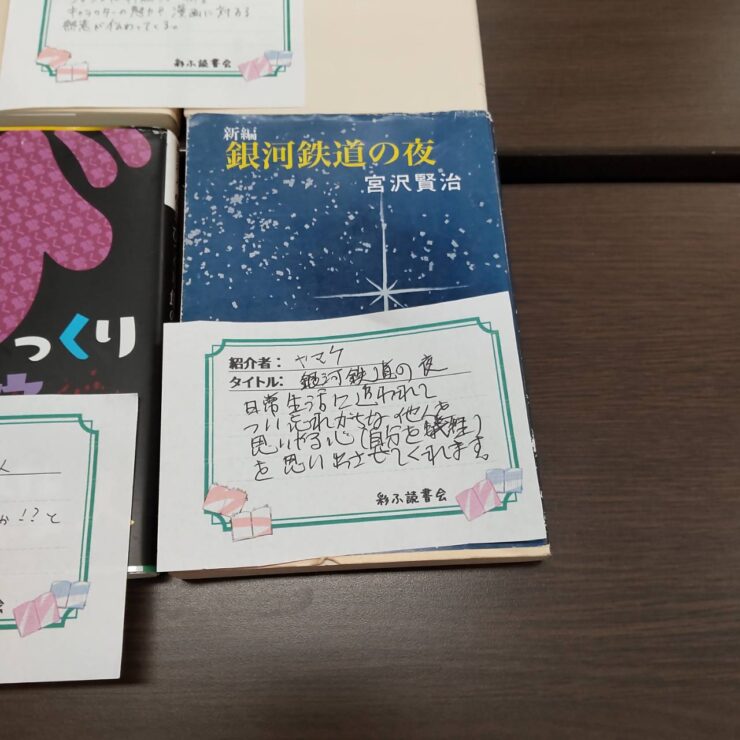 キャラクターの魅力や漫画に対する
彩ふ読書会
新編
銀河鉄道の夜
宮沢賢治
っくり
紹介者: ヤマケ
タイトル: 銀河鉄道の夜
日常生活に追われて
つい忘れがちな他人を
思いやる心(自分を犠牲)
を思い出させてくれます。
彩ふ読書会
か!?と
会